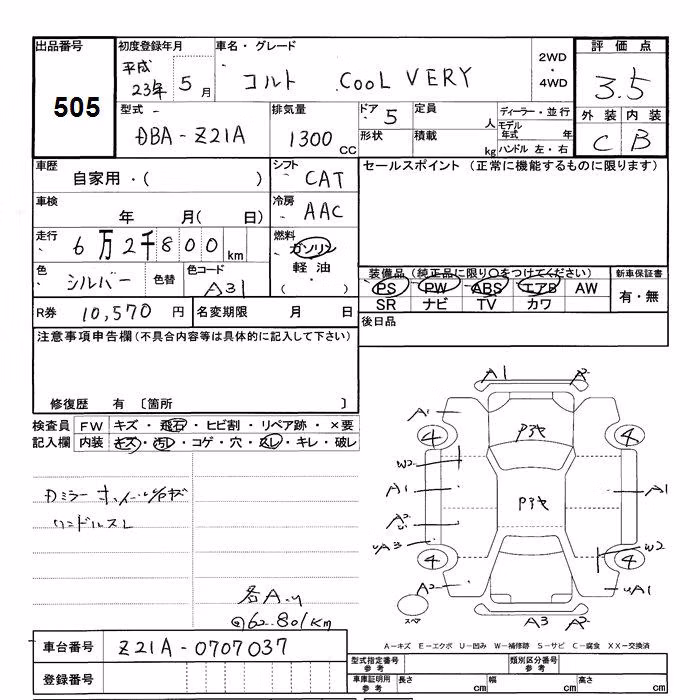 出品番号
505
初度登録年月
平成
23年 5 月
車名・グレード
コルト COOL VERY
2WD
・
4WD
評価点
3.5
型式
DBA-Z21A
排気量
1300 CC
ドア 5
定員 人
形状
積載 kg
ディーラー・並行
モデル年式 年
ハンドル 左・右
外装 内装
C B
車歴
自家用・( )
シフト CAT
セールスポイント (正常に機能するものに限ります)
車検
年 月( 日)
冷房 AAC
走行 6万2千800 km
燃料
ガソリン
軽油
( ・ )
色 シルバー
色替
色コード A31
装備品 (純正品に限り○をつけてください)
新車保証書
PS PW ABS エアB AW
有・無
SR ナビ TV カワ
R券 10,570 円
名変期限 月 日
後日品
注意事項申告欄(不具合内容等は具体的に記入して下さい)
修復歴 有 〔箇所 〕
検査員
記入欄
FW キズ・飛石・ヒビ割・リペア跡・×要
内装 キズ・汚レ・コゲ・穴・スレ・キレ・破レ
ハンドルスレ
各A.U
@62.801km
A1 A2
A1
4 4
W2
A1 A1
A2
UA3
W2
4 4
A2 UA1
スペア
A3 A2
車台番号 Z21A-0707037
登録番号
A-キズ E-エクボ U-凹み W-補修跡 S-サビ C-腐食 XX-交換済
型式指定番号
参考
類別区分番号
参考
車庫証明用
参考
長さ cm 幅 cm 高さ cm